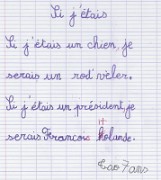 Si j'étais
Si j'étais un chien, je
serais un rod vèler.
Si j'étais un président, je
serais Francou Holande.
Léo 7 ans